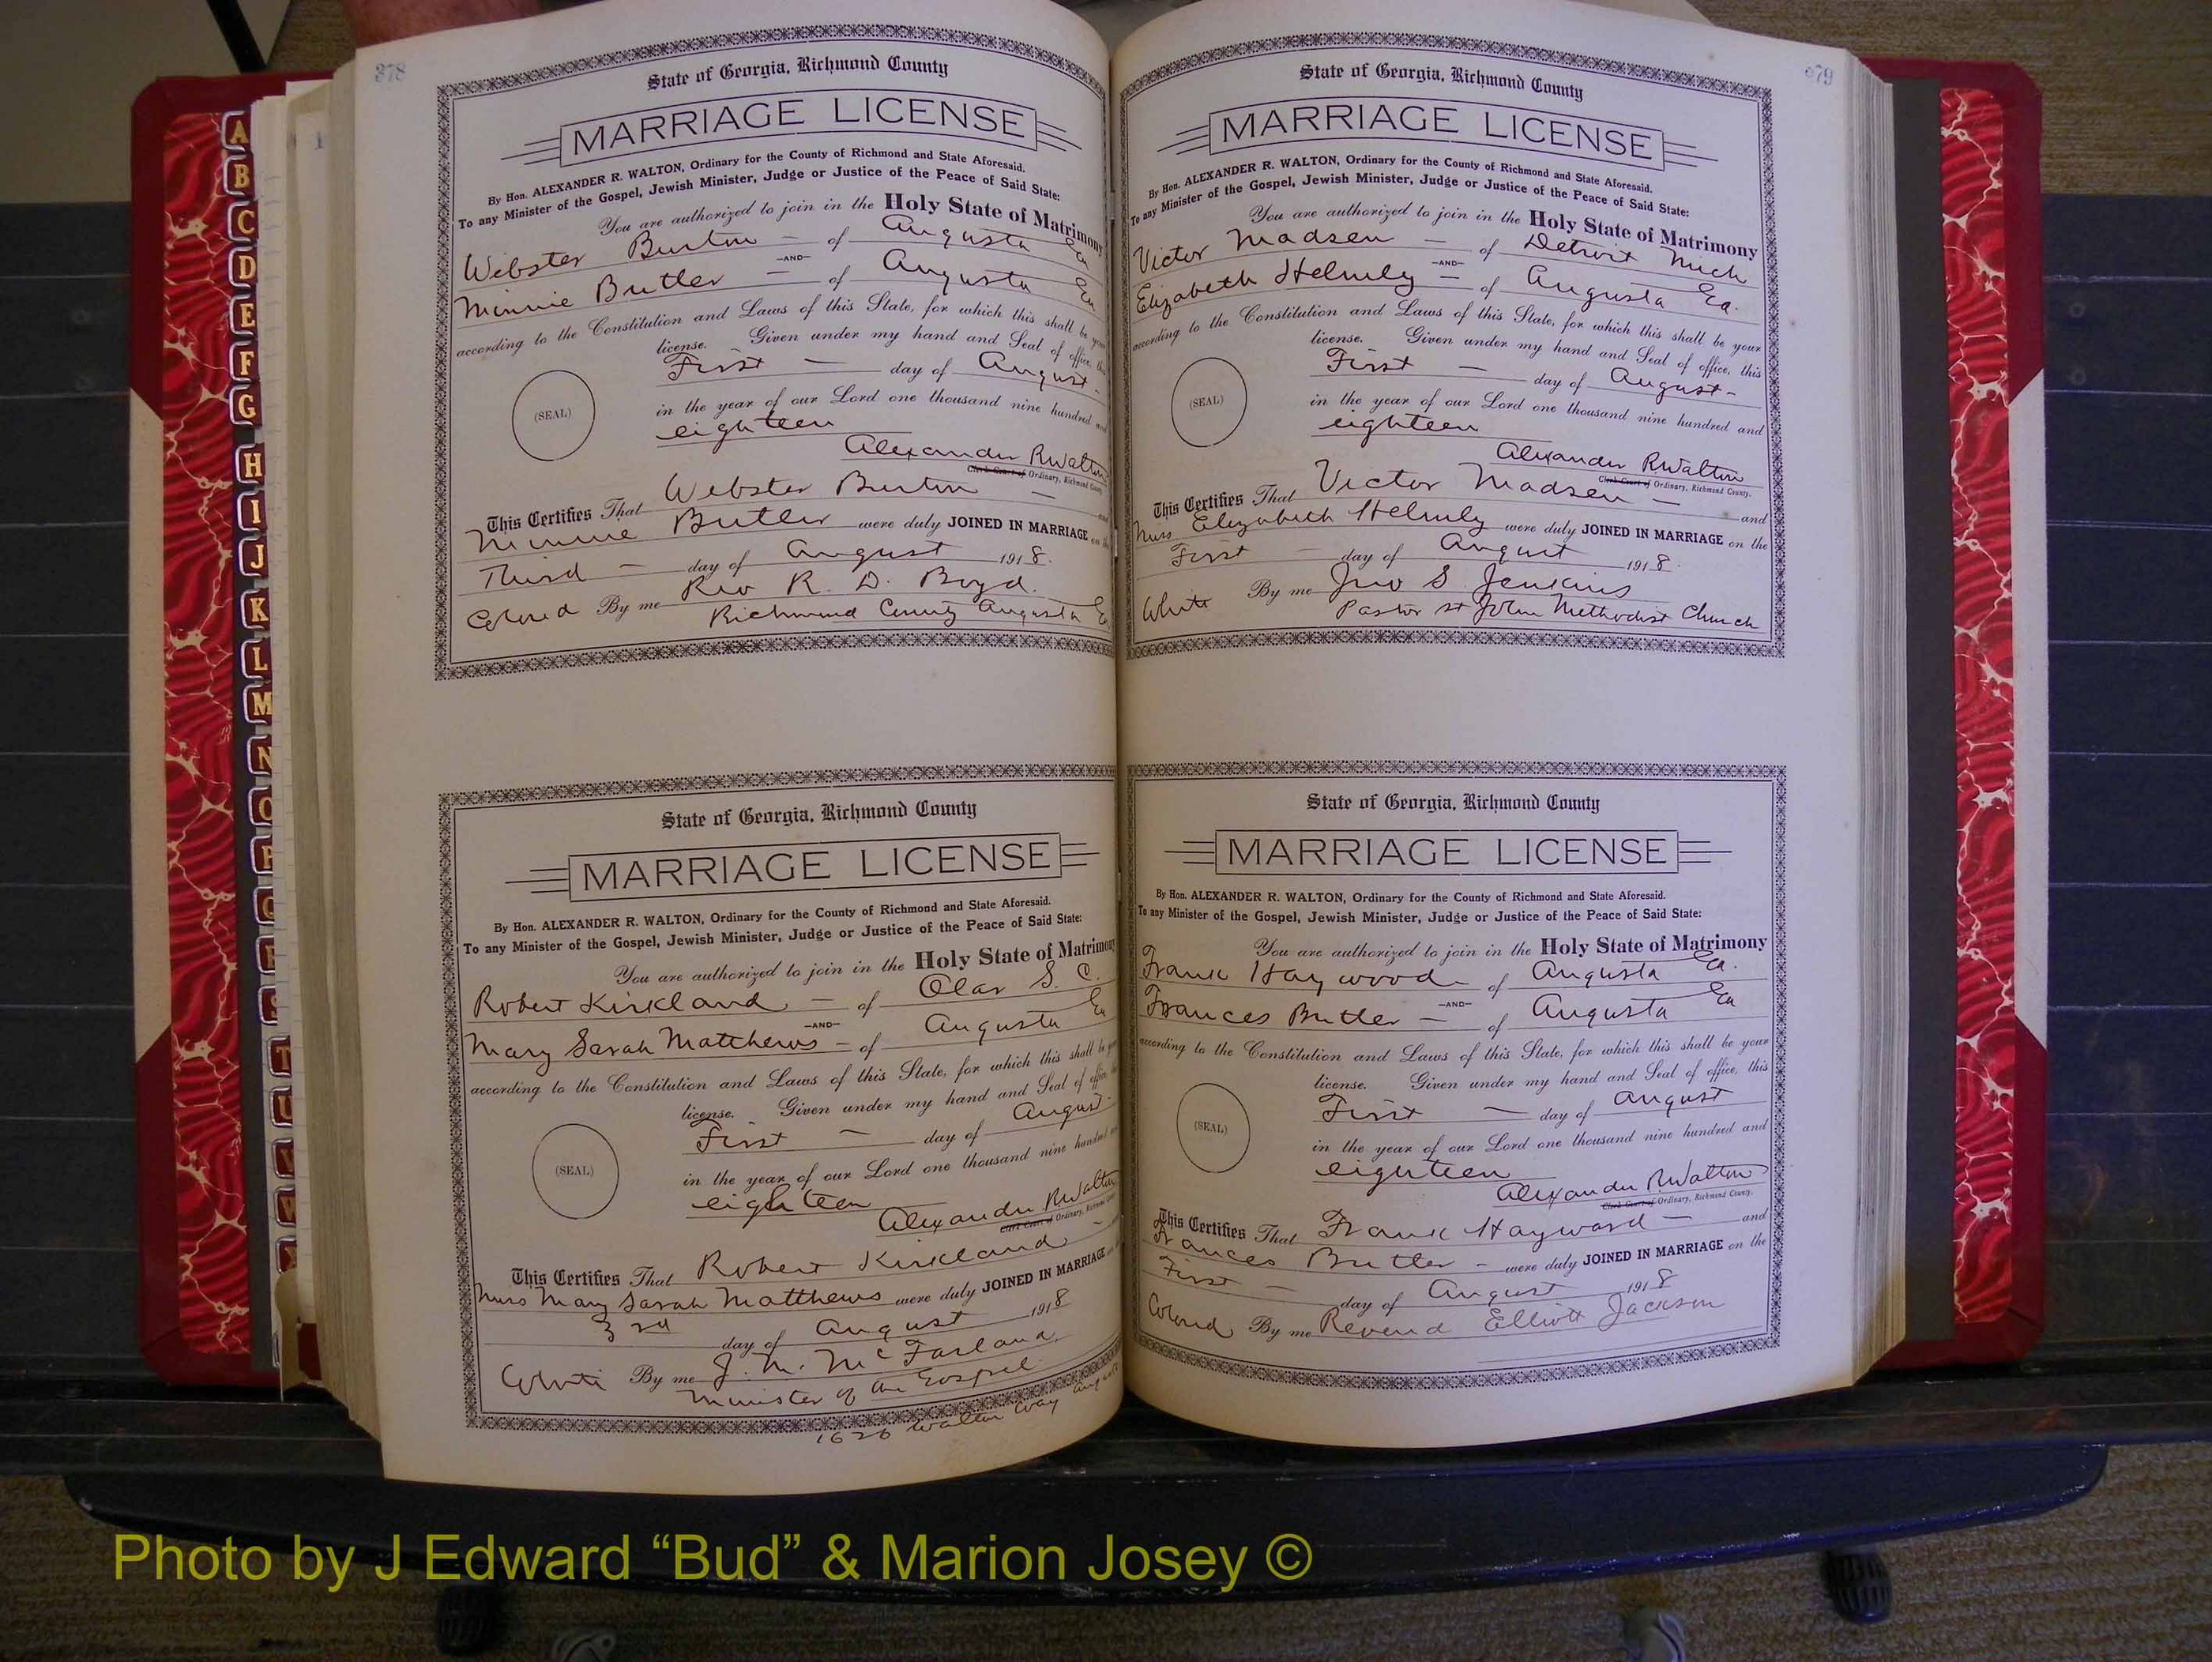 378
State of Georgia, Richmond County
MARRIAGE LICENSE
By Hon. ALEXANDER R. WALTON, Ordinary for the County of Richmond and State Aforesaid.
To any Minister of the Gospel, Jewish Minister, Judge or Justice of the Peace of Said State:
You are authorized to join in the Holy State of Matrimony
Webster Burton — of Augusta Ga
—AND—
Minnie Butler — of Augusta Ga
according to the Constitution and Laws of this State, for which this shall be your
license. Given under my hand and Seal of office, this
First — day of August -
(SEAL)
in the year of our Lord one thousand nine hundred and
eighteen
Alexander R Walton
Clerk Court of Ordinary, Richmond County.
This Certifies That Webster Burton —
Minnie Butler were duly JOINED IN MARRIAGE on the
Third — day of August 1918.
Colored By me Rev R. D. Boyd.
Richmond County Augusta Ga
State of Georgia, Richmond County
MARRIAGE LICENSE
By Hon. ALEXANDER R. WALTON, Ordinary for the County of Richmond and State Aforesaid.
To any Minister of the Gospel, Jewish Minister, Judge or Justice of the Peace of Said State:
You are authorized to join in the Holy State of Matrimony
Robert Kirkland — of Olar S. C.
—AND—
Mary Sarah Matthews — of Augusta Ga
according to the Constitution and Laws of this State, for which this shall be your
license. Given under my hand and Seal of office
First — day of August
(SEAL)
in the year of our Lord one thousand nine hundred
eighteen
Alexander R Walton
Clerk Court of Ordinary, Richmond County
This Certifies That Robert Kirkland —
Miss Mary Sarah Matthews were duly JOINED IN MARRIAGE
3rd day of August 1918
White By me J. M. McFarland
Minister of the Gospel.
1626 Walton Way Augusta
379
State of Georgia, Richmond County
MARRIAGE LICENSE
By Hon. ALEXANDER R. WALTON, Ordinary for the County of Richmond and State Aforesaid.
To any Minister of the Gospel, Jewish Minister, Judge or Justice of the Peace of Said State:
You are authorized to join in the Holy State of Matrimony
Victor Madsen — of Detroit Mich
—AND—
Elizabeth Helmly — of Augusta Ga.
according to the Constitution and Laws of this State, for which this shall be your
license. Given under my hand and Seal of office, this
First — day of August -
(SEAL)
in the year of our Lord one thousand nine hundred and
eighteen
Alexander R Walton
Clerk Court of Ordinary, Richmond County.
This Certifies That Victor Madsen — and
Miss Elizabeth Helmly were duly JOINED IN MARRIAGE on the
First — day of August 1918.
White By me Jno S. Jenkins
Pastor St John Methodist Church
State of Georgia, Richmond County
MARRIAGE LICENSE
By Hon. ALEXANDER R. WALTON, Ordinary for the County of Richmond and State Aforesaid.
To any Minister of the Gospel, Jewish Minister, Judge or Justice of the Peace of Said State:
You are authorized to join in the Holy State of Matrimony
Frank Haywood of Augusta Ga.
—AND—
Frances Butler — of Augusta Ga
according to the Constitution and Laws of this State, for which this shall be your
license. Given under my hand and Seal of office, this
First — day of August
(SEAL)
in the year of our Lord one thousand nine hundred and
eighteen
Alexander R Walton
Clerk Court of Ordinary, Richmond County.
This Certifies That Frank Hayward — and
Frances Butler - were duly JOINED IN MARRIAGE on the
First — day of August 1918
Colored By me Reverend Elliott Jackson
A
B
C
D
E
F
G
H
I
J
K
L
M
N
O
P
Q
R
S
T
U
V
W
Y
Photo by J Edward “Bud” & Marion Josey ©